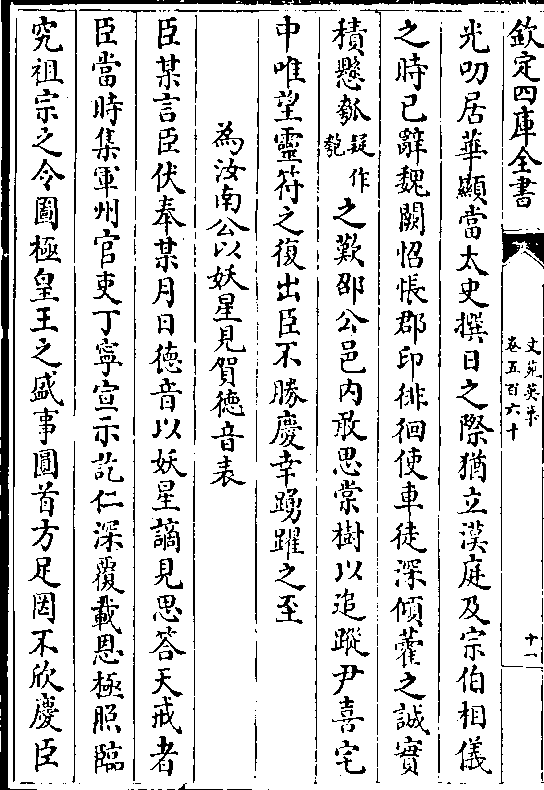 欽定四庫全書
文苑英華
卷五百六十
十一
光叨居華顯當太史撰日之際猶立漢庭及宗伯相儀
之時已辭魏闕怊悵郡印徘徊使車徒深傾藿之誠實
積懸瓠疑作匏之歎邵公邑内敢思棠樹以追蹤尹喜宅
中唯望靈符之復出臣不勝慶幸踴躍之至
為汝南公以妖星見賀德音表
臣某言臣伏奉某月日德音以妖星謫見思答天戒者
臣當時集軍州官吏丁寧宣示訖仁深覆載恩極照臨
究祖宗之令圖極皇王之盛事圓首方足罔不欣慶臣